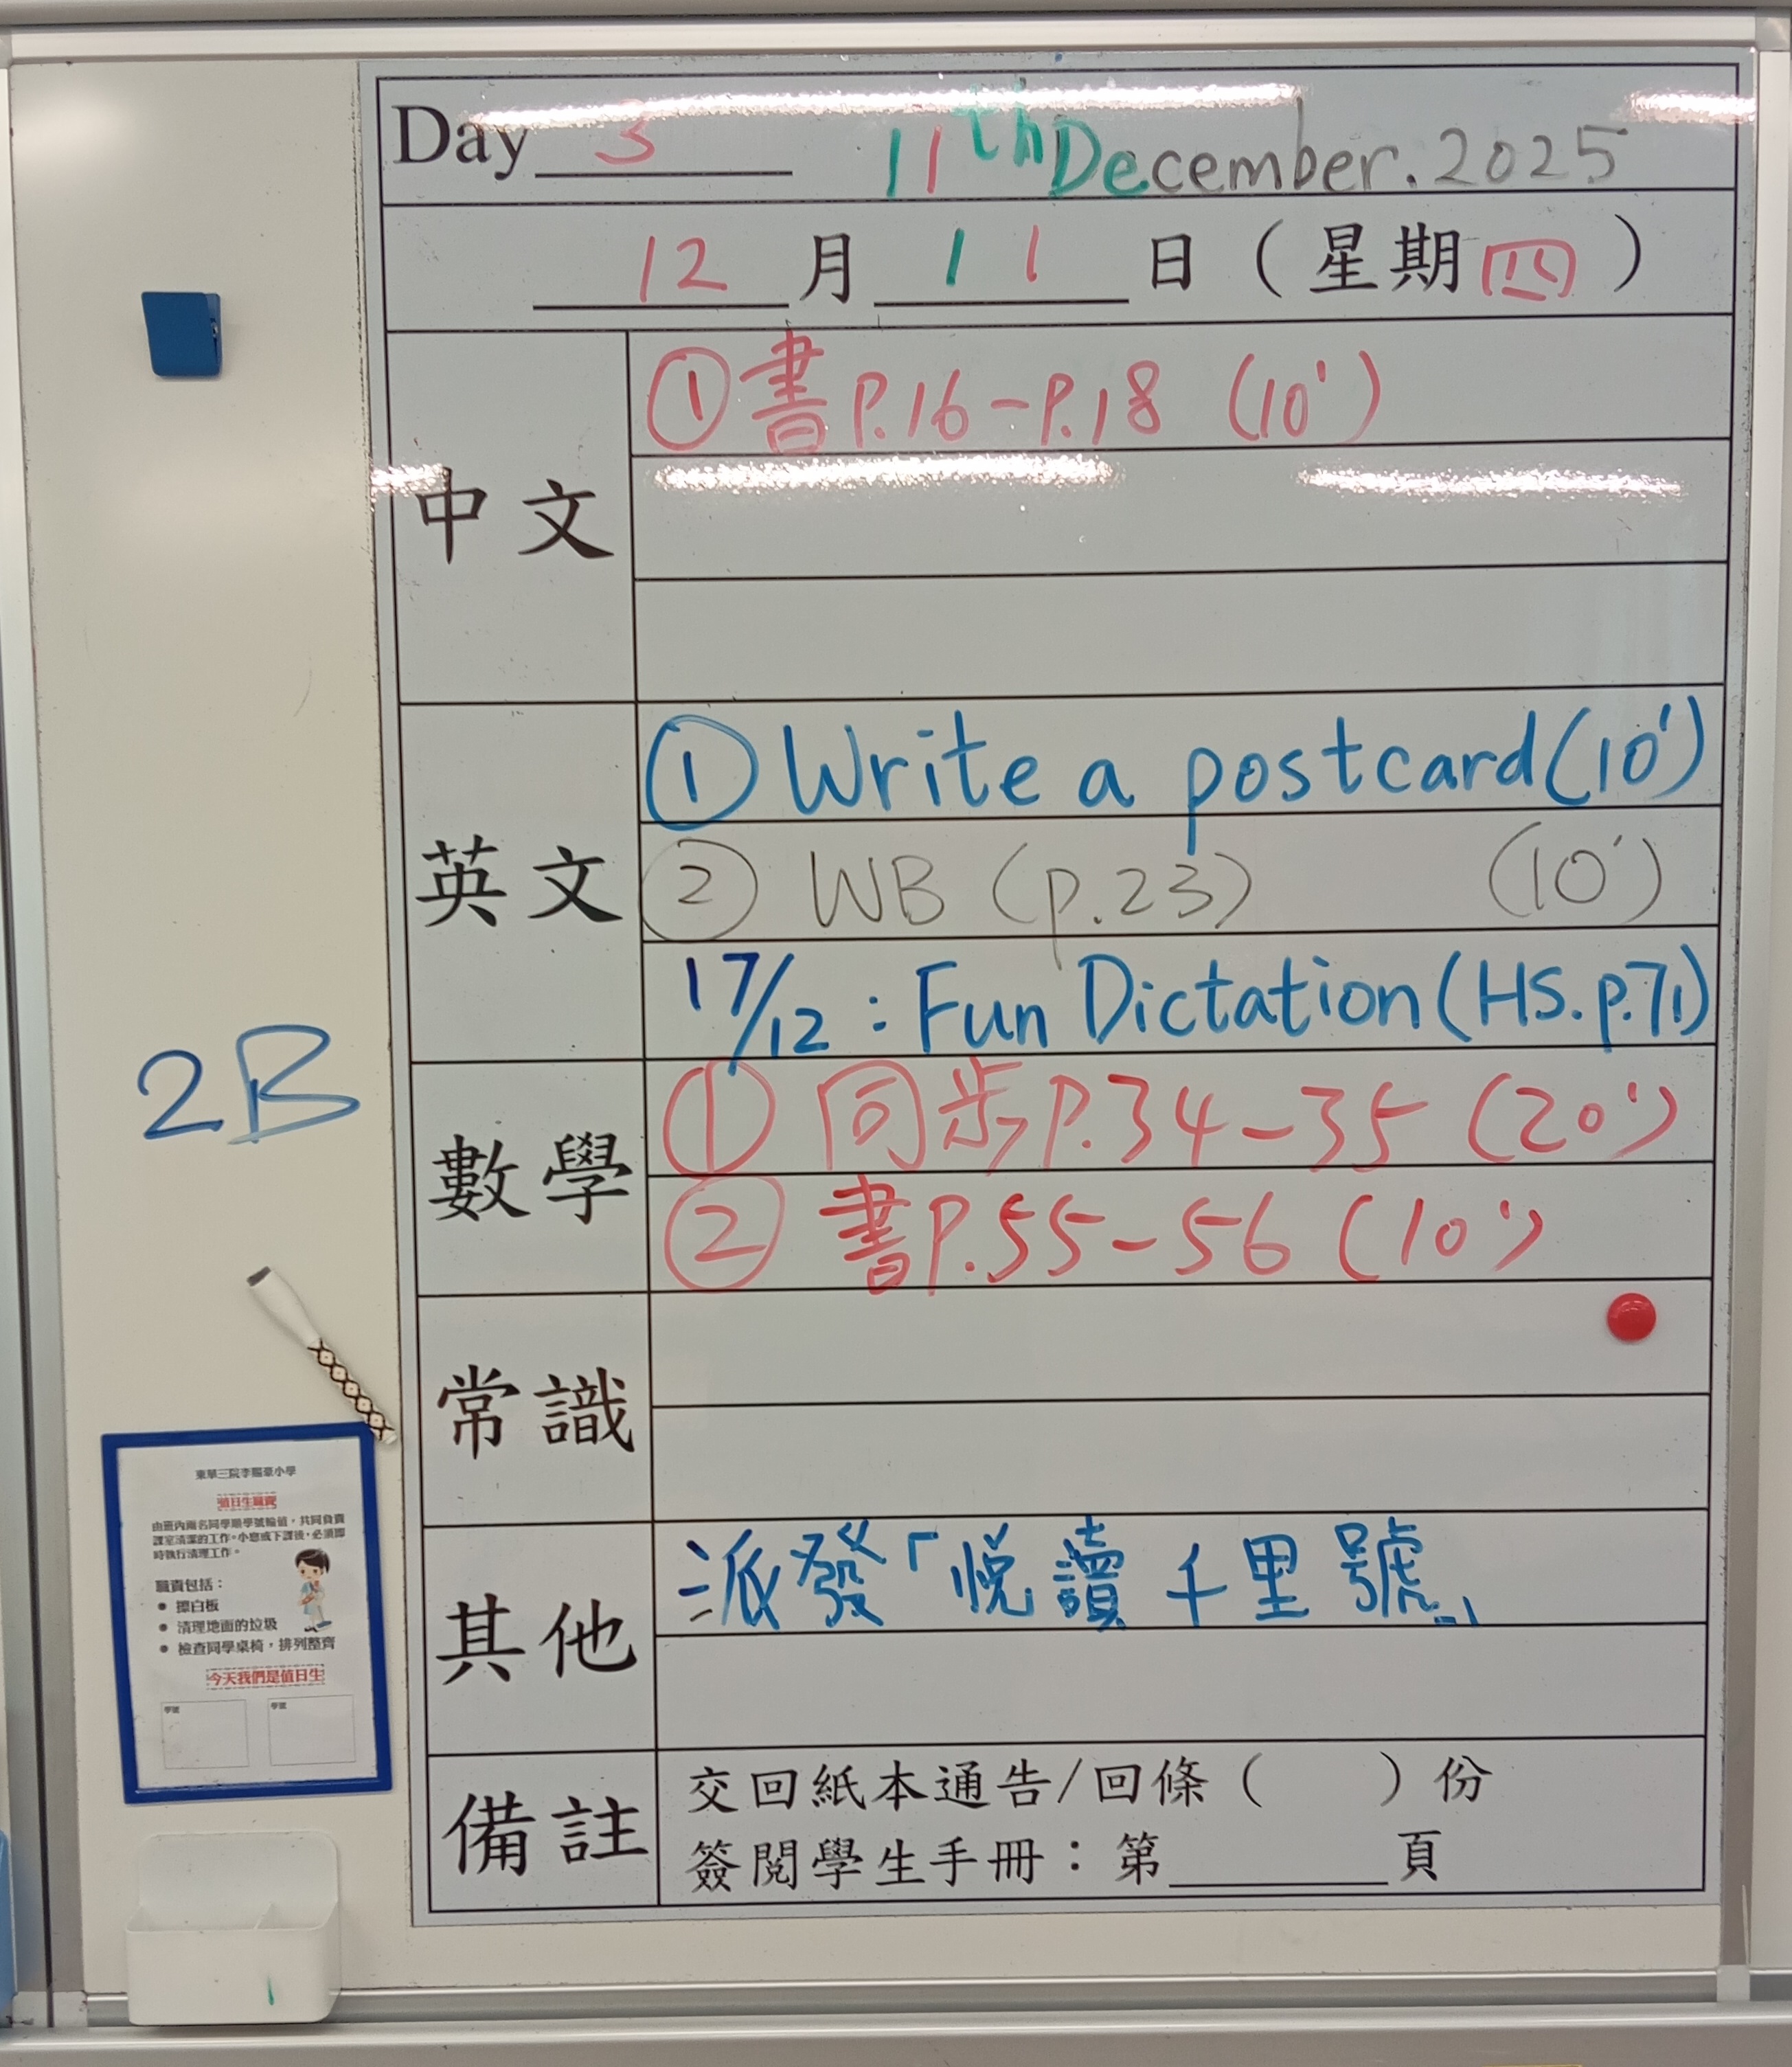 Day 3 11th December.2025
12月11日（星期四）
中文
①書P.16-P.18 (10')
英文
①Write a postcard(10')
② WB (p.23) (10')
17/12 : Fun Dictation(HS.p.71)
數學
① 同步P.34-35 (20')
② 書P.55-56 (10')
常識
其他
派發「悅讀千里號」
備註
交回紙本通告/回條（ ）份
簽閱學生手冊：第 頁
2B
東華三院李賜豪小學
值日生職責
由班內兩名同學順學號輪值，共同負責
課室清潔的工作。小息或下課後，必須即
時執行清理工作。
職責包括：
● 擦白板
● 清理地面的垃圾
● 檢查同學桌椅，排列整齊
今天我們是值日生
學號 學號